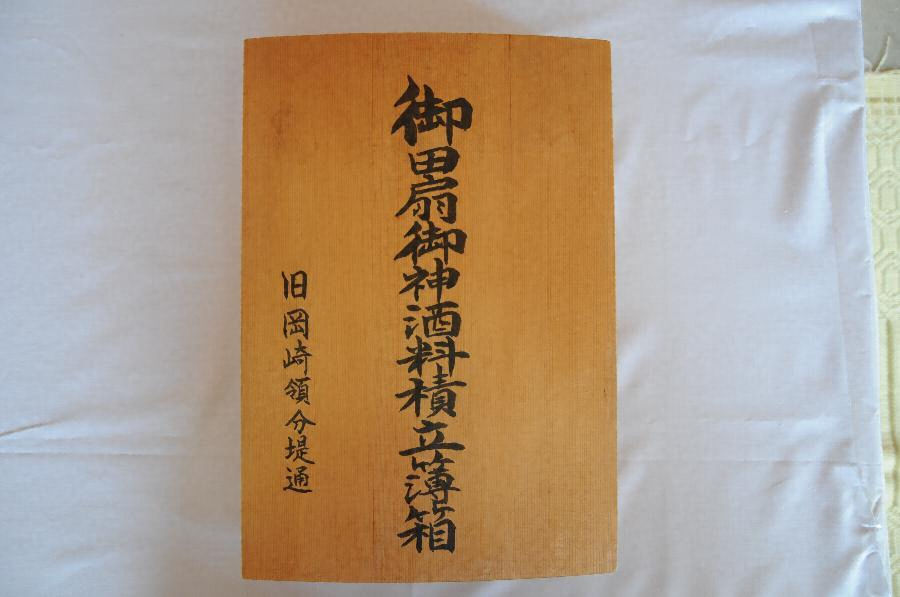 御田扇御神酒料積立簿箱
旧岡崎領分堤通